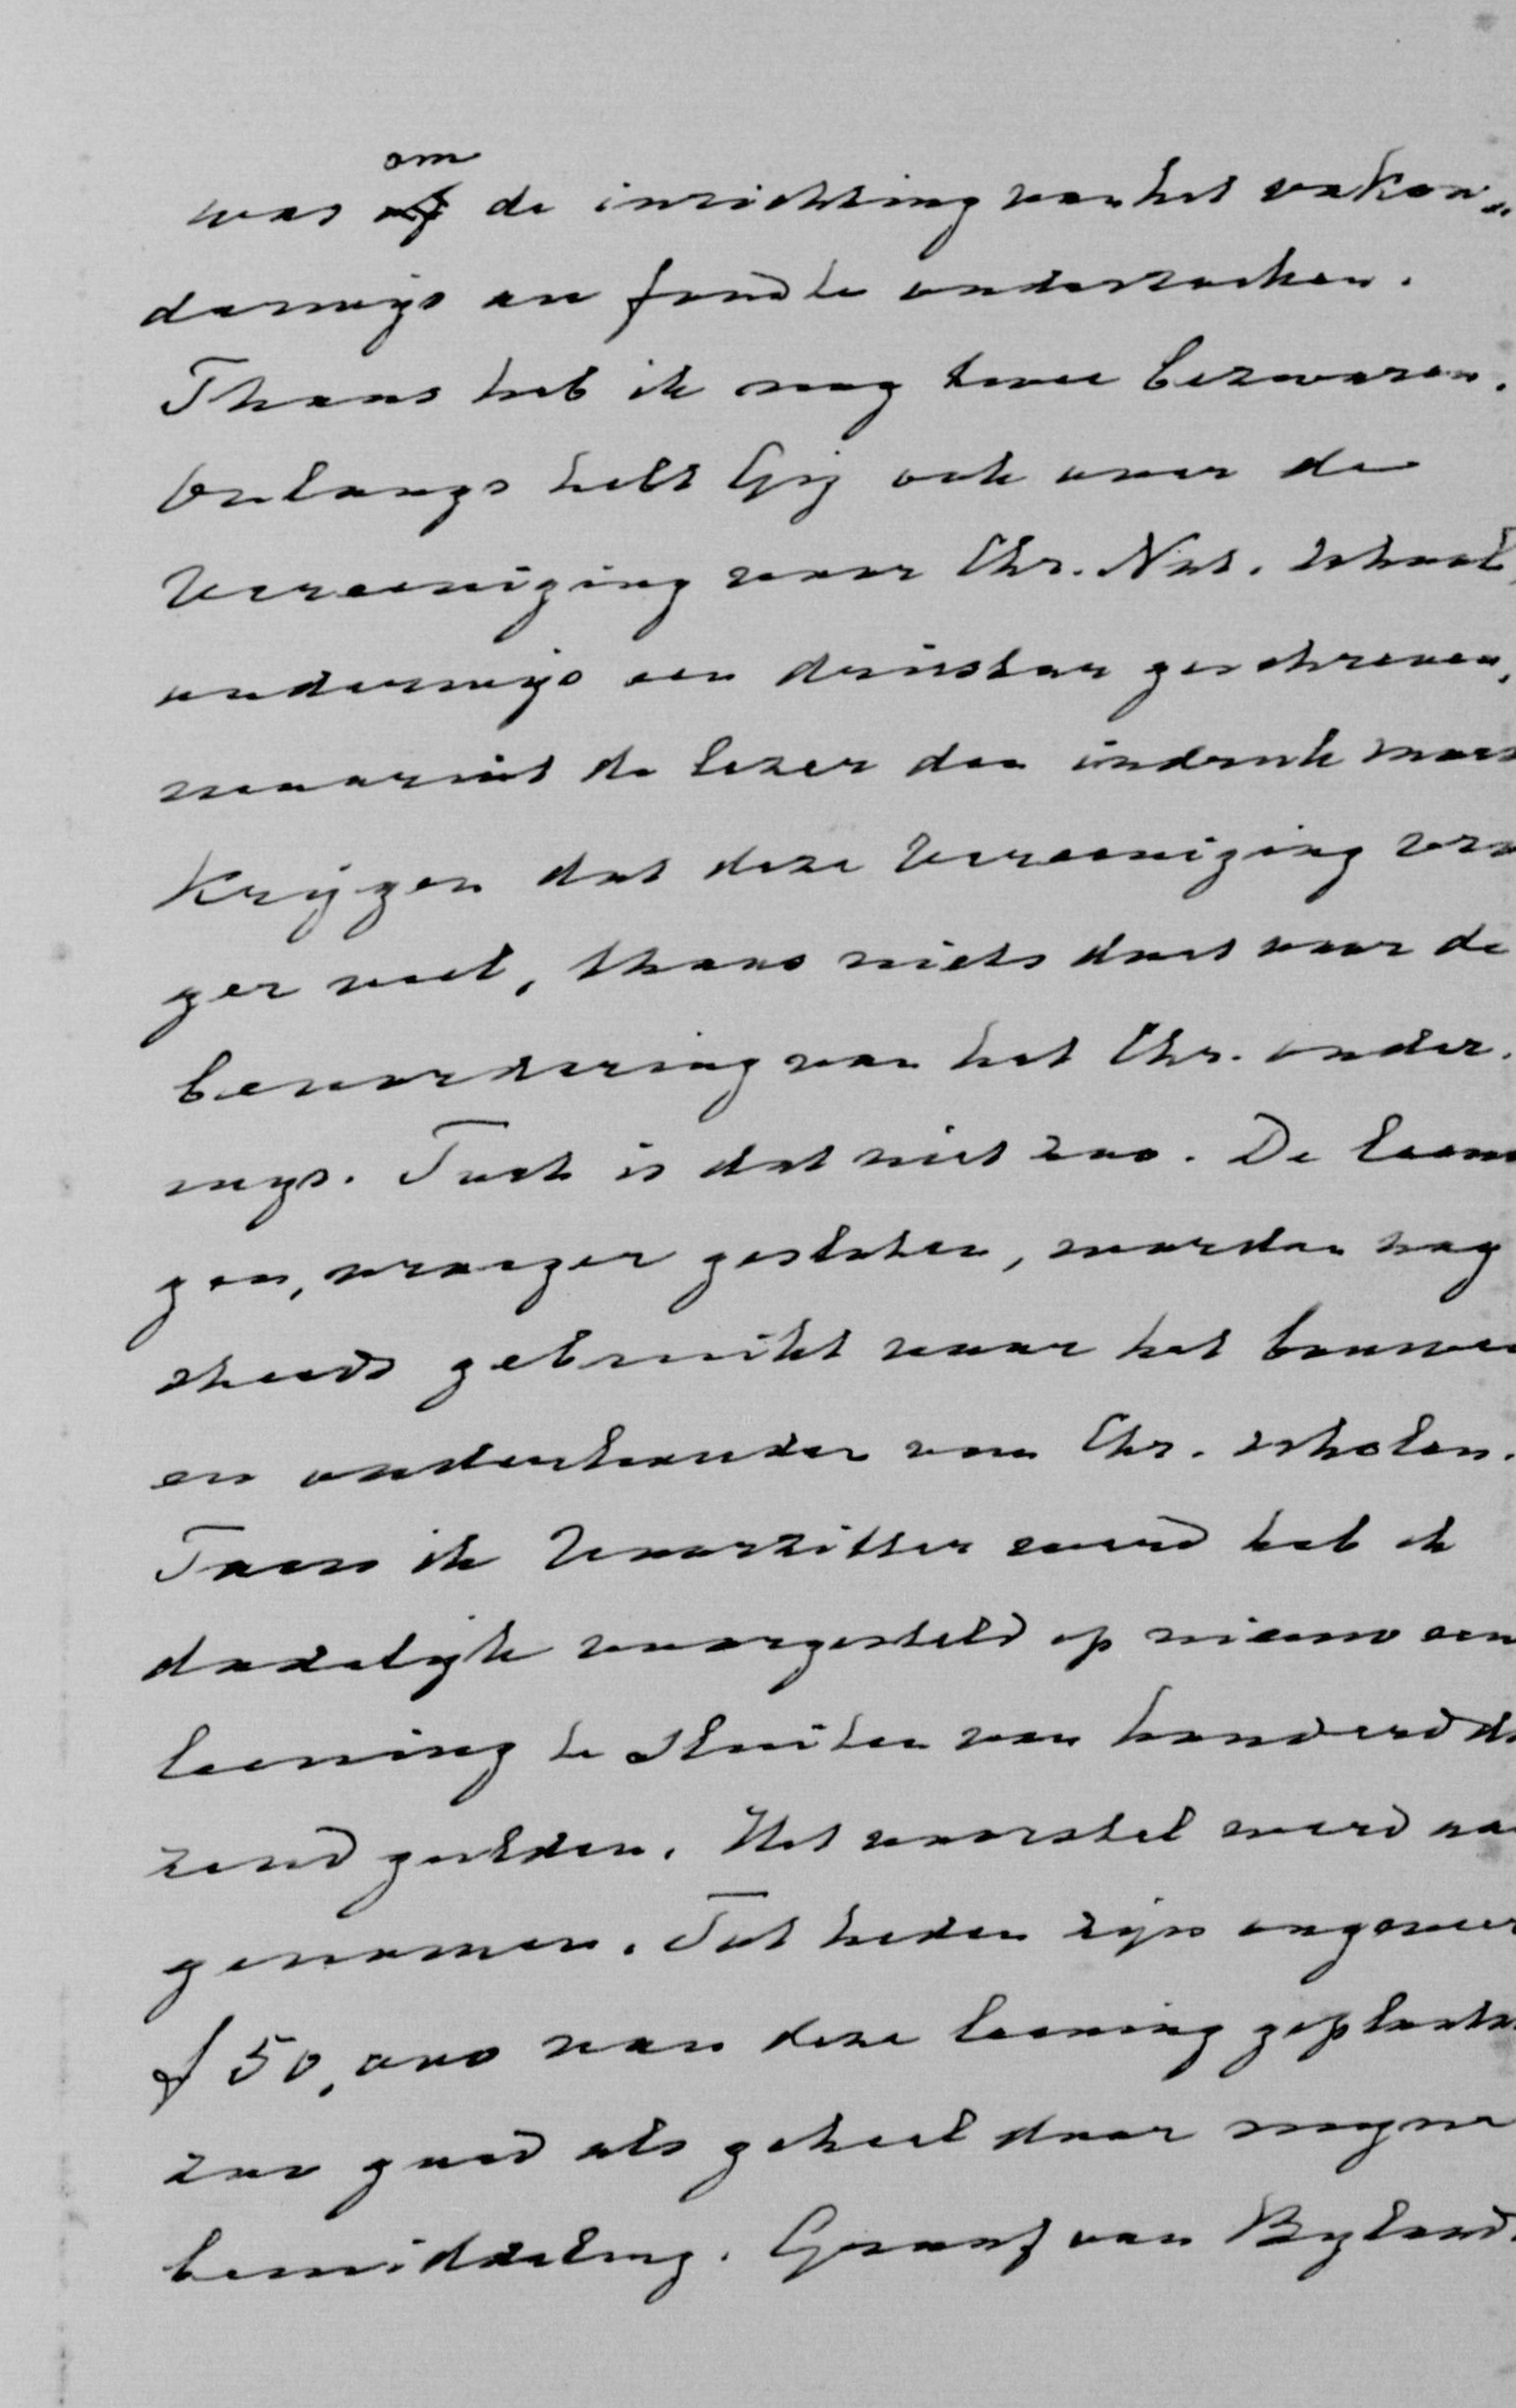 om
was de inrichting van het vakon„
derwijs au fond te onderzoeken.
Thans heb ik nog twee bezwaren.
Onlangs hebt Gij ook over de
Vereeniging voor Chr. Nat. School
onderwijs een driestar geschreven,
waaruit de lezer den indruk moet
krijgen dat deze Vereeniging vroe
ger veel, thans niets doet voor de
bevordering van het Chr. onder.
wijs. Toch is dat niet zoo. De leenin
gen, vroeger gesloten, worden nog
steeds gebruikt voor het bouwen
en onderhouden van Chr. scholen.
Toen ik Voorzitter werd heb ik
dadelijk voorgesteld op nieuw een
leening te sluiten van honderd du
zend gulden. Het voorstel werd aan
genomen. Tot heden zijn ongeveer
f 50,000 van deze leening geplaatst
zoo goed als geheel door mijne
bemiddeling. Graaf van Bylandt